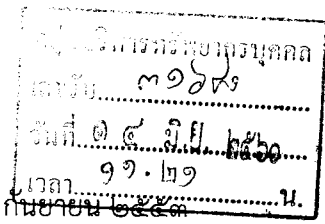 บริหารทรัพยากรบุคคล
เลขรับ
วันที่ ๑๔ มิ.ย. ๒๕๖๐
เวลา ๑๑.๒๑ น.
กันยายน ๒๕๕๓